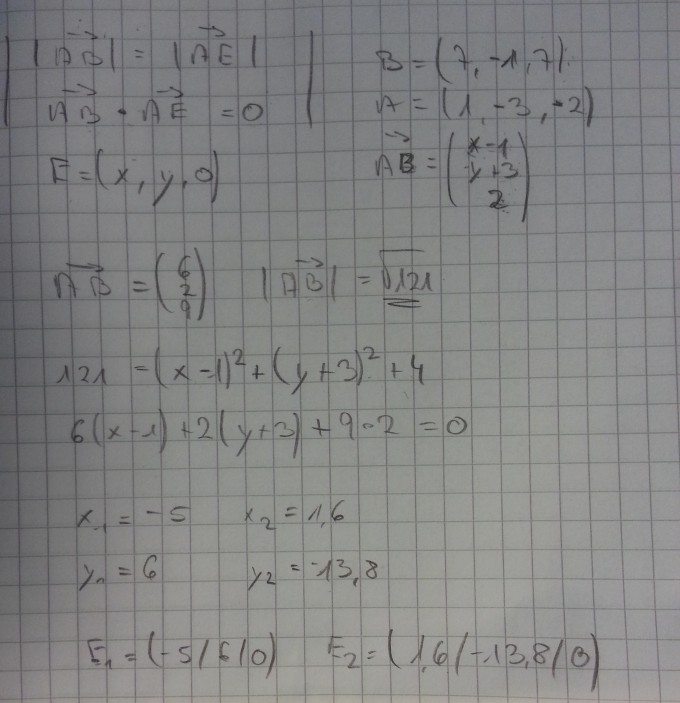 |AB⃗| = |AE⃗|
AB⃗ · AE⃗ = 0
E = (x, y, 0)
B = (7, -1, 7).
A = (1, -3, -2)
AB⃗ = (x-1
y+3
2)
AB⃗ = (6
2
9) |AB⃗| = √121
121 = (x-1)² + (y+3)² + 4
6(x-1) + 2(y+3) + 9·2 = 0
x₁ = -5 x₂ = 1,6
y₁ = 6 y₂ = -13,8
E₁ = (-5/6/0) E₂ = (1,6/-13,8/0)